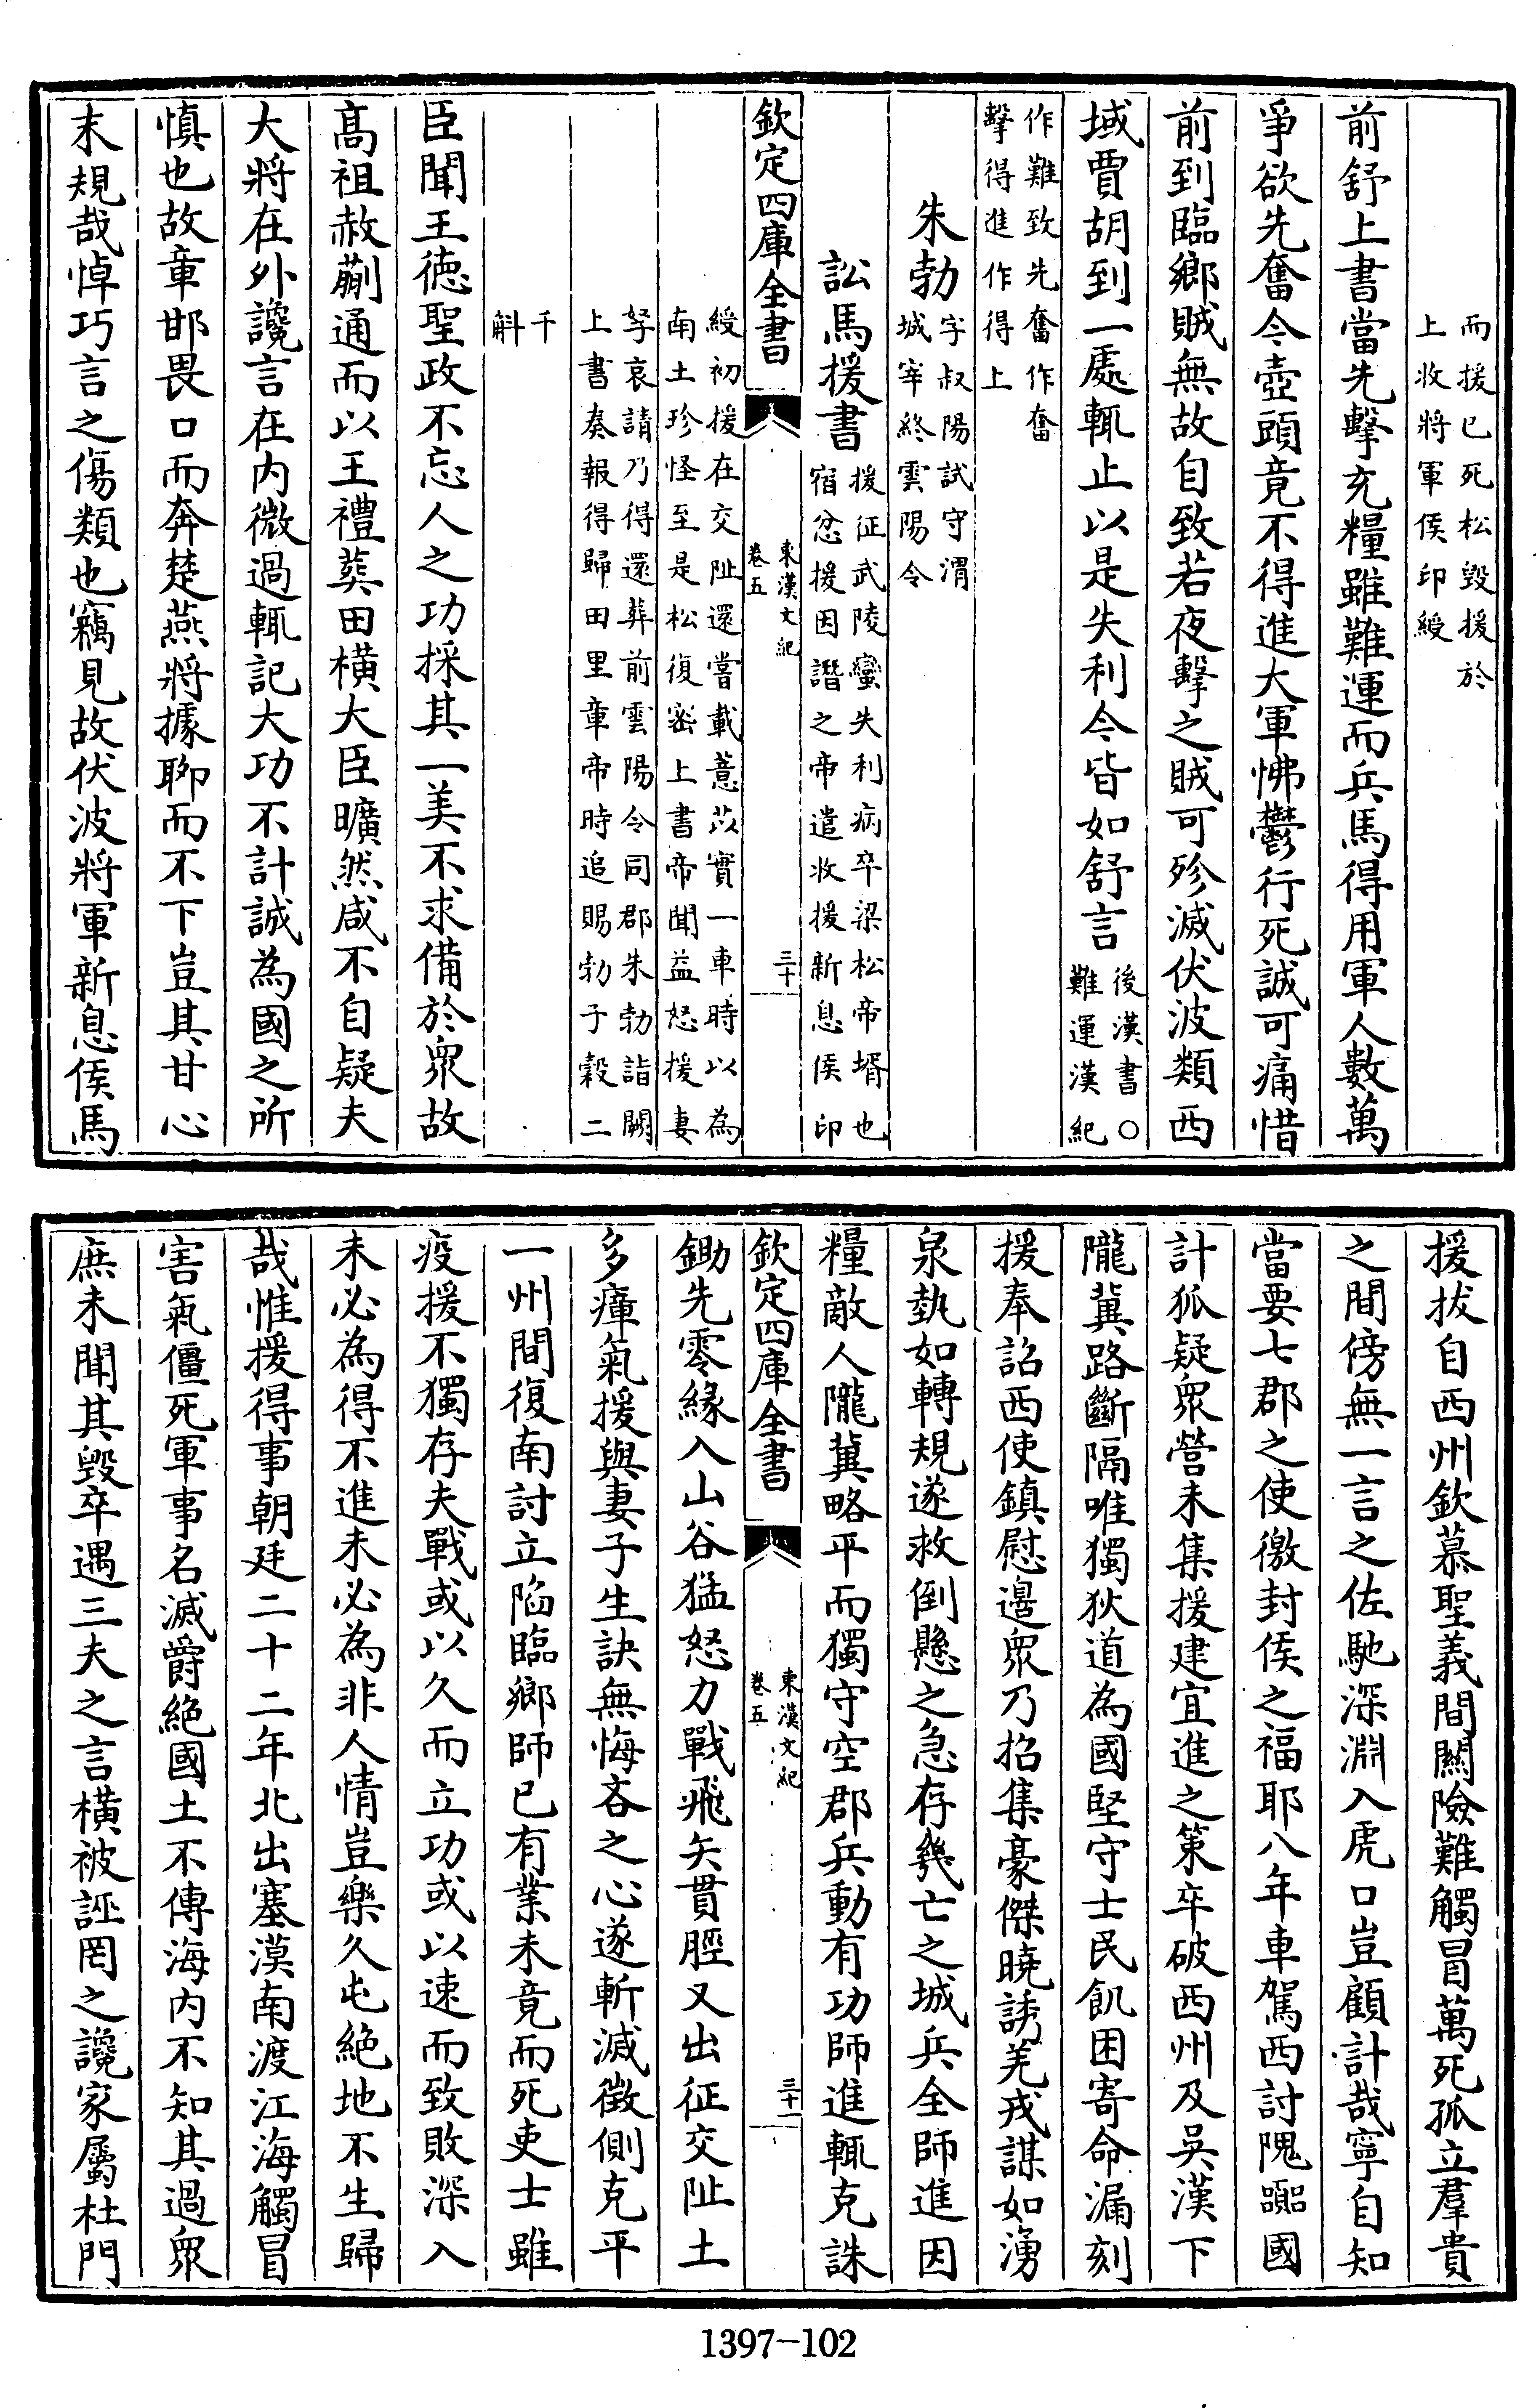 而援已死松毀援於
上收將軍侯印綬
前舒上書當先擊充糧雖難運而兵馬得用軍人數萬
爭欲先奮今壺頭竟不得進大軍怫鬱行死誠可痛惜
前到臨鄉賊無故自致若夜擊之賊可殄滅伏波類西
域賈胡到一處輒止以是失利今皆如舒言
後漢書○
難運漢紀
作難致先奮作奮
擊得進作得上
朱勃
字叔陽試守渭
城宰終雲陽令
訟馬援書
援征武陵蠻失利病卒梁松帝壻也
宿忿援因譖之帝遣收援新息侯印
欽定四庫全書
東漢文紀
卷五
三十
綬初援在交阯還嘗載薏苡實一車時以為
南土珍怪至是松復密上書帝聞益怒援妻
孥哀請乃得還葬前雲陽令同郡朱勃詣闕
上書奏報得歸田里章帝時追賜勃子穀二
千
斛
臣聞王徳聖政不忘人之功採其一美不求備於衆故
髙祖赦蒯通而以王禮葬田横大臣曠然咸不自疑夫
大將在外讒言在内微過輒記大功不計誠為國之所
慎也故章邯畏口而奔楚燕將據聊而不下豈其甘心
末規哉悼巧言之傷類也竊見故伏波將軍新息侯馬
援拔自西州欽慕聖義間關險難觸冒萬死孤立羣貴
之間傍無一言之佐馳深淵入虎口豈顧計哉寧自知
當要七郡之使徼封侯之福耶八年車駕西討隗囂國
計狐疑衆營未集援建宜進之策卒破西州及吳漢下
隴冀路斷隔唯獨狄道為國堅守士民飢困寄命漏刻
援奉詔西使鎮慰邉衆乃招集豪傑曉誘羌戎謀如湧
泉埶如轉規遂救倒懸之急存幾亡之城兵全師進因
糧敵人隴冀略平而獨守空郡兵動有功師進輒克誅
欽定四庫全書
東漢文紀
卷五
三十一
鋤先零緣入山谷猛怒力戰飛矢貫脛又出征交阯土
多瘴氣援與妻子生訣無悔吝之心遂斬滅徵側克平
一州間復南討立陷臨鄉師已有業未竟而死吏士雖
疫援不獨存夫戰或以久而立功或以速而致敗深入
未必為得不進未必為非人情豈樂久屯絶地不生歸
哉惟援得事朝廷二十二年北出塞漠南渡江海觸冒
害氣僵死軍事名滅爵絶國土不傳海内不知其過衆
庶未聞其毀卒遇三夫之言横被誣罔之讒家屬杜門
1397-102